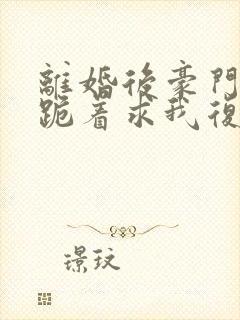 離婚後豪門
跪着求我復
璟玟